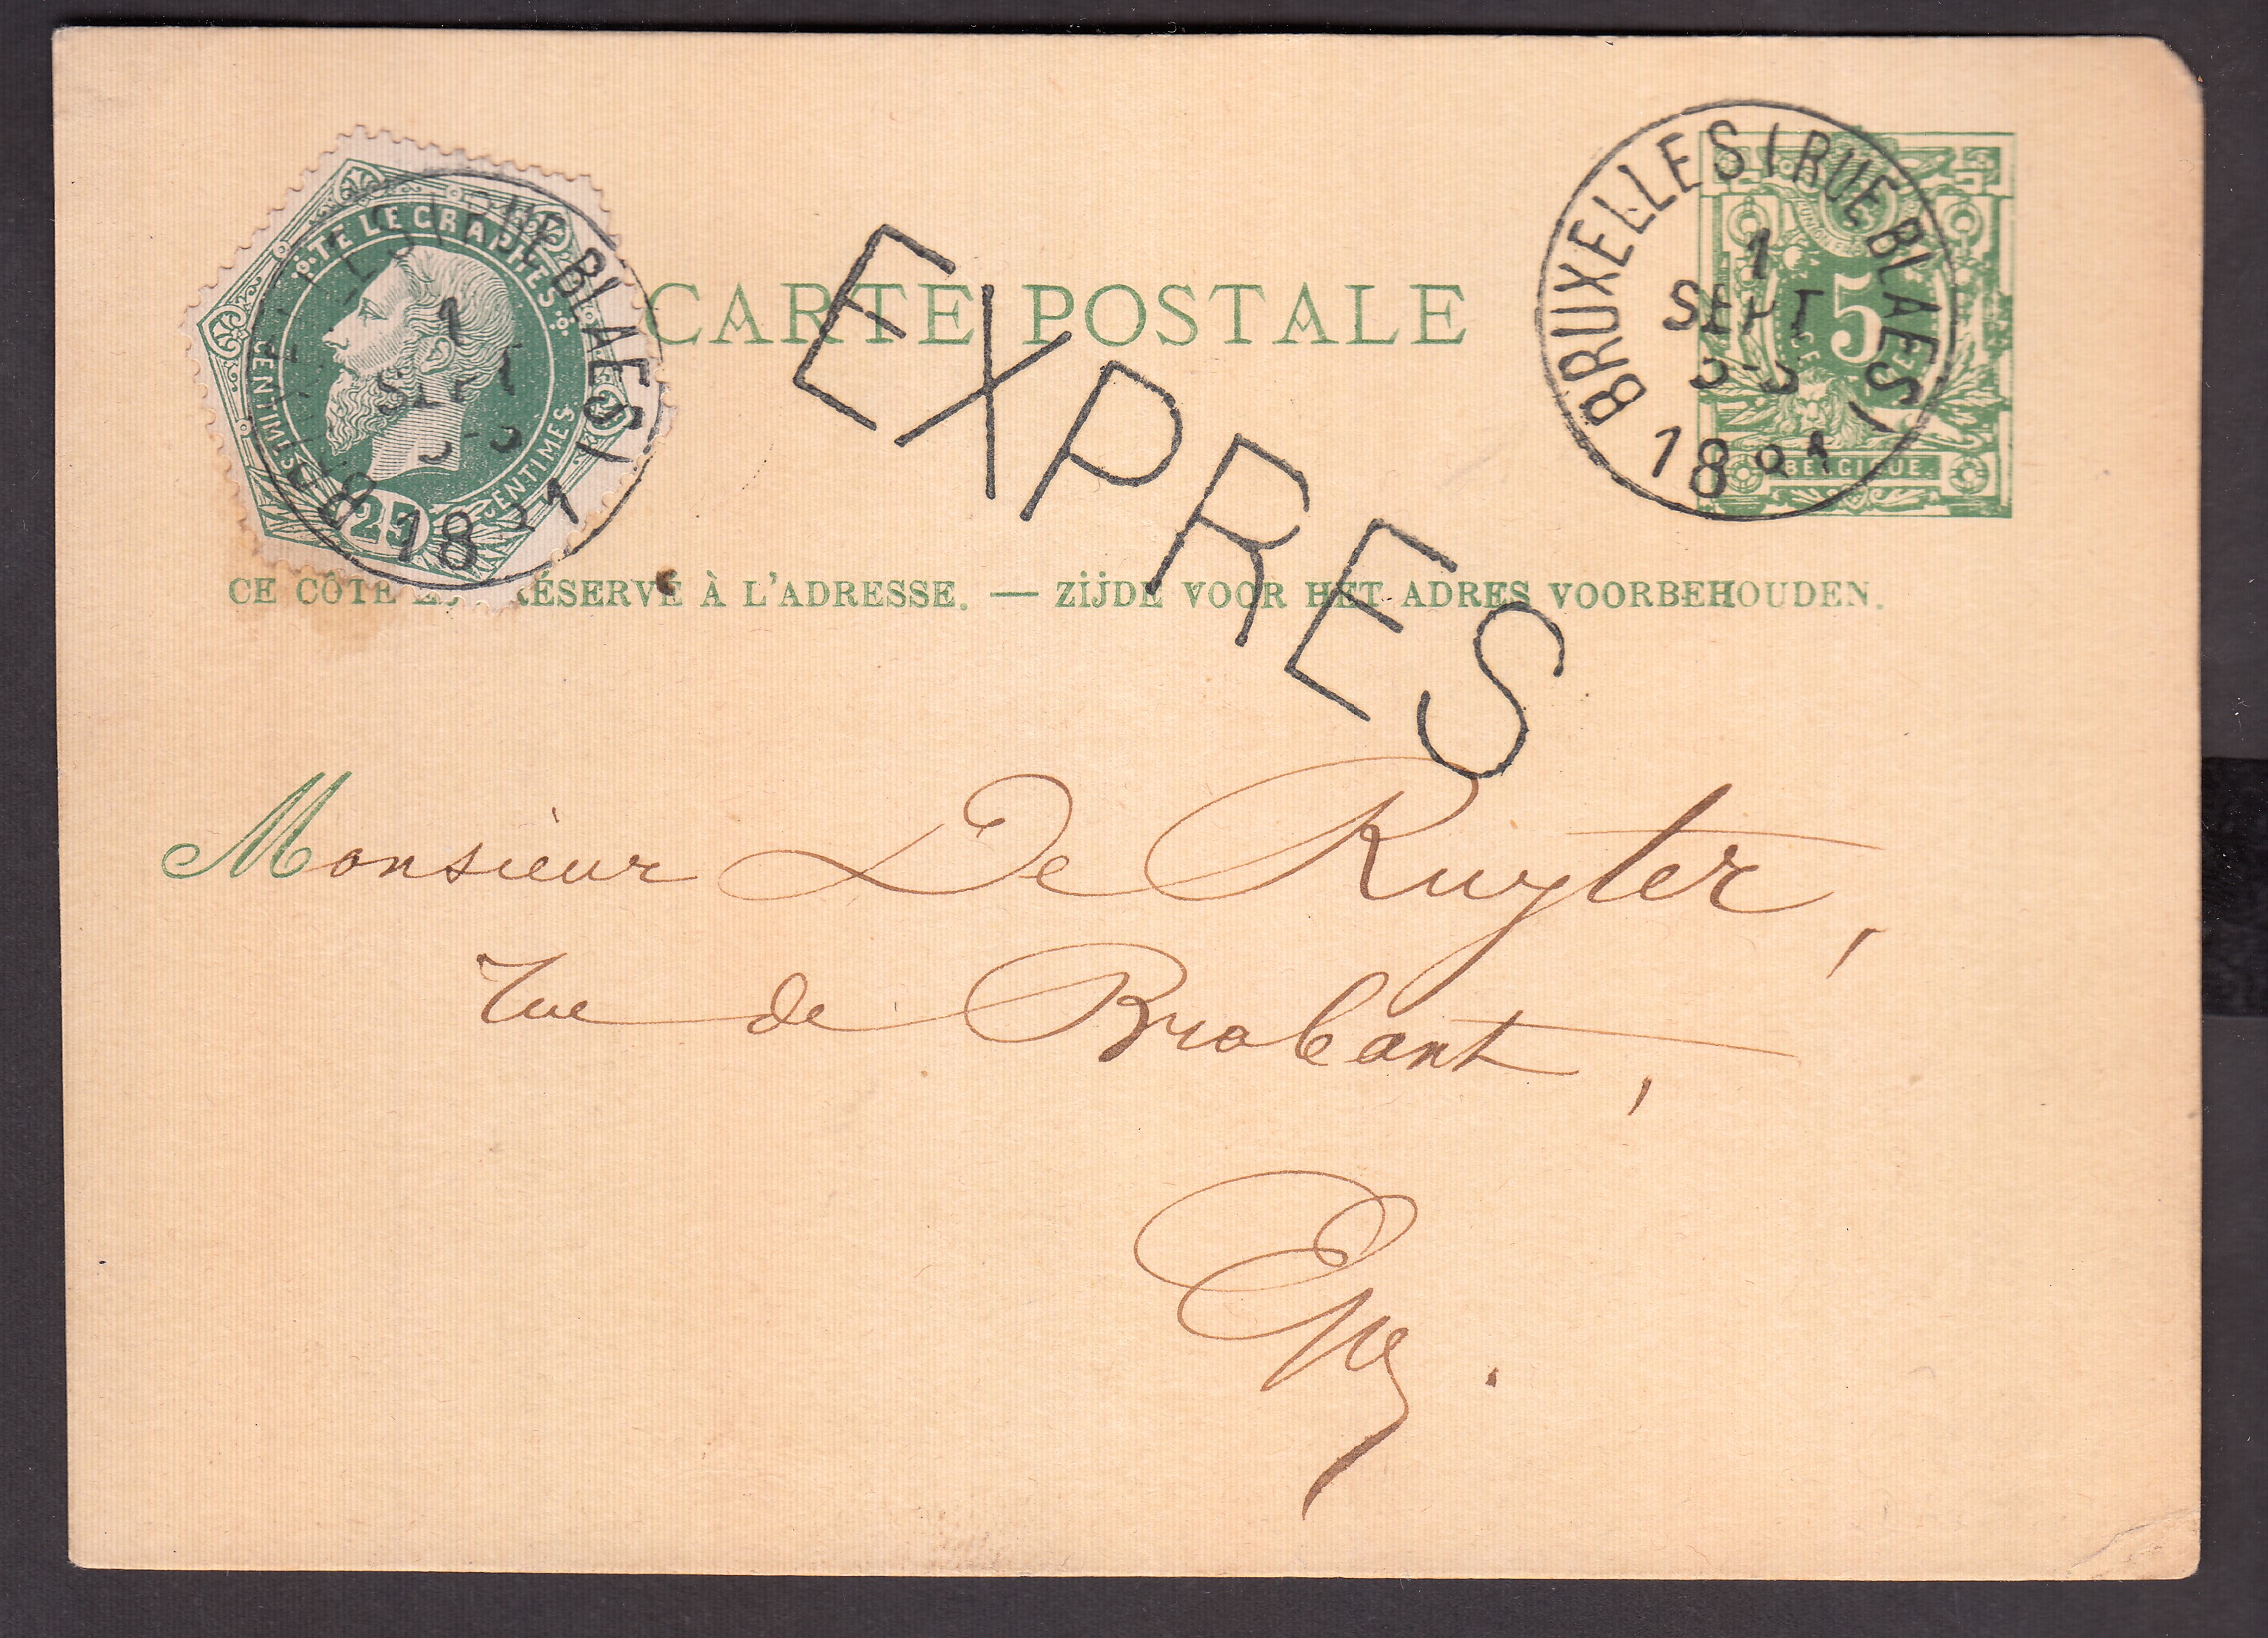 TELEGRAPHES
CENTIMES 25 CENTIMES
RUE BLAES)
1
SEPT
18
CARTE POSTALE
EXPRES
BRUXELLES (RUE BLAES)
1
SEPT
18
5
BELGIQUE.
CE CÔTÉ RÉSERVÉ À L'ADRESSE. — ZIJDE VOOR HET ADRES VOORBEHOUDEN.
Monsieur De Ruyter,
rue de Brabant,